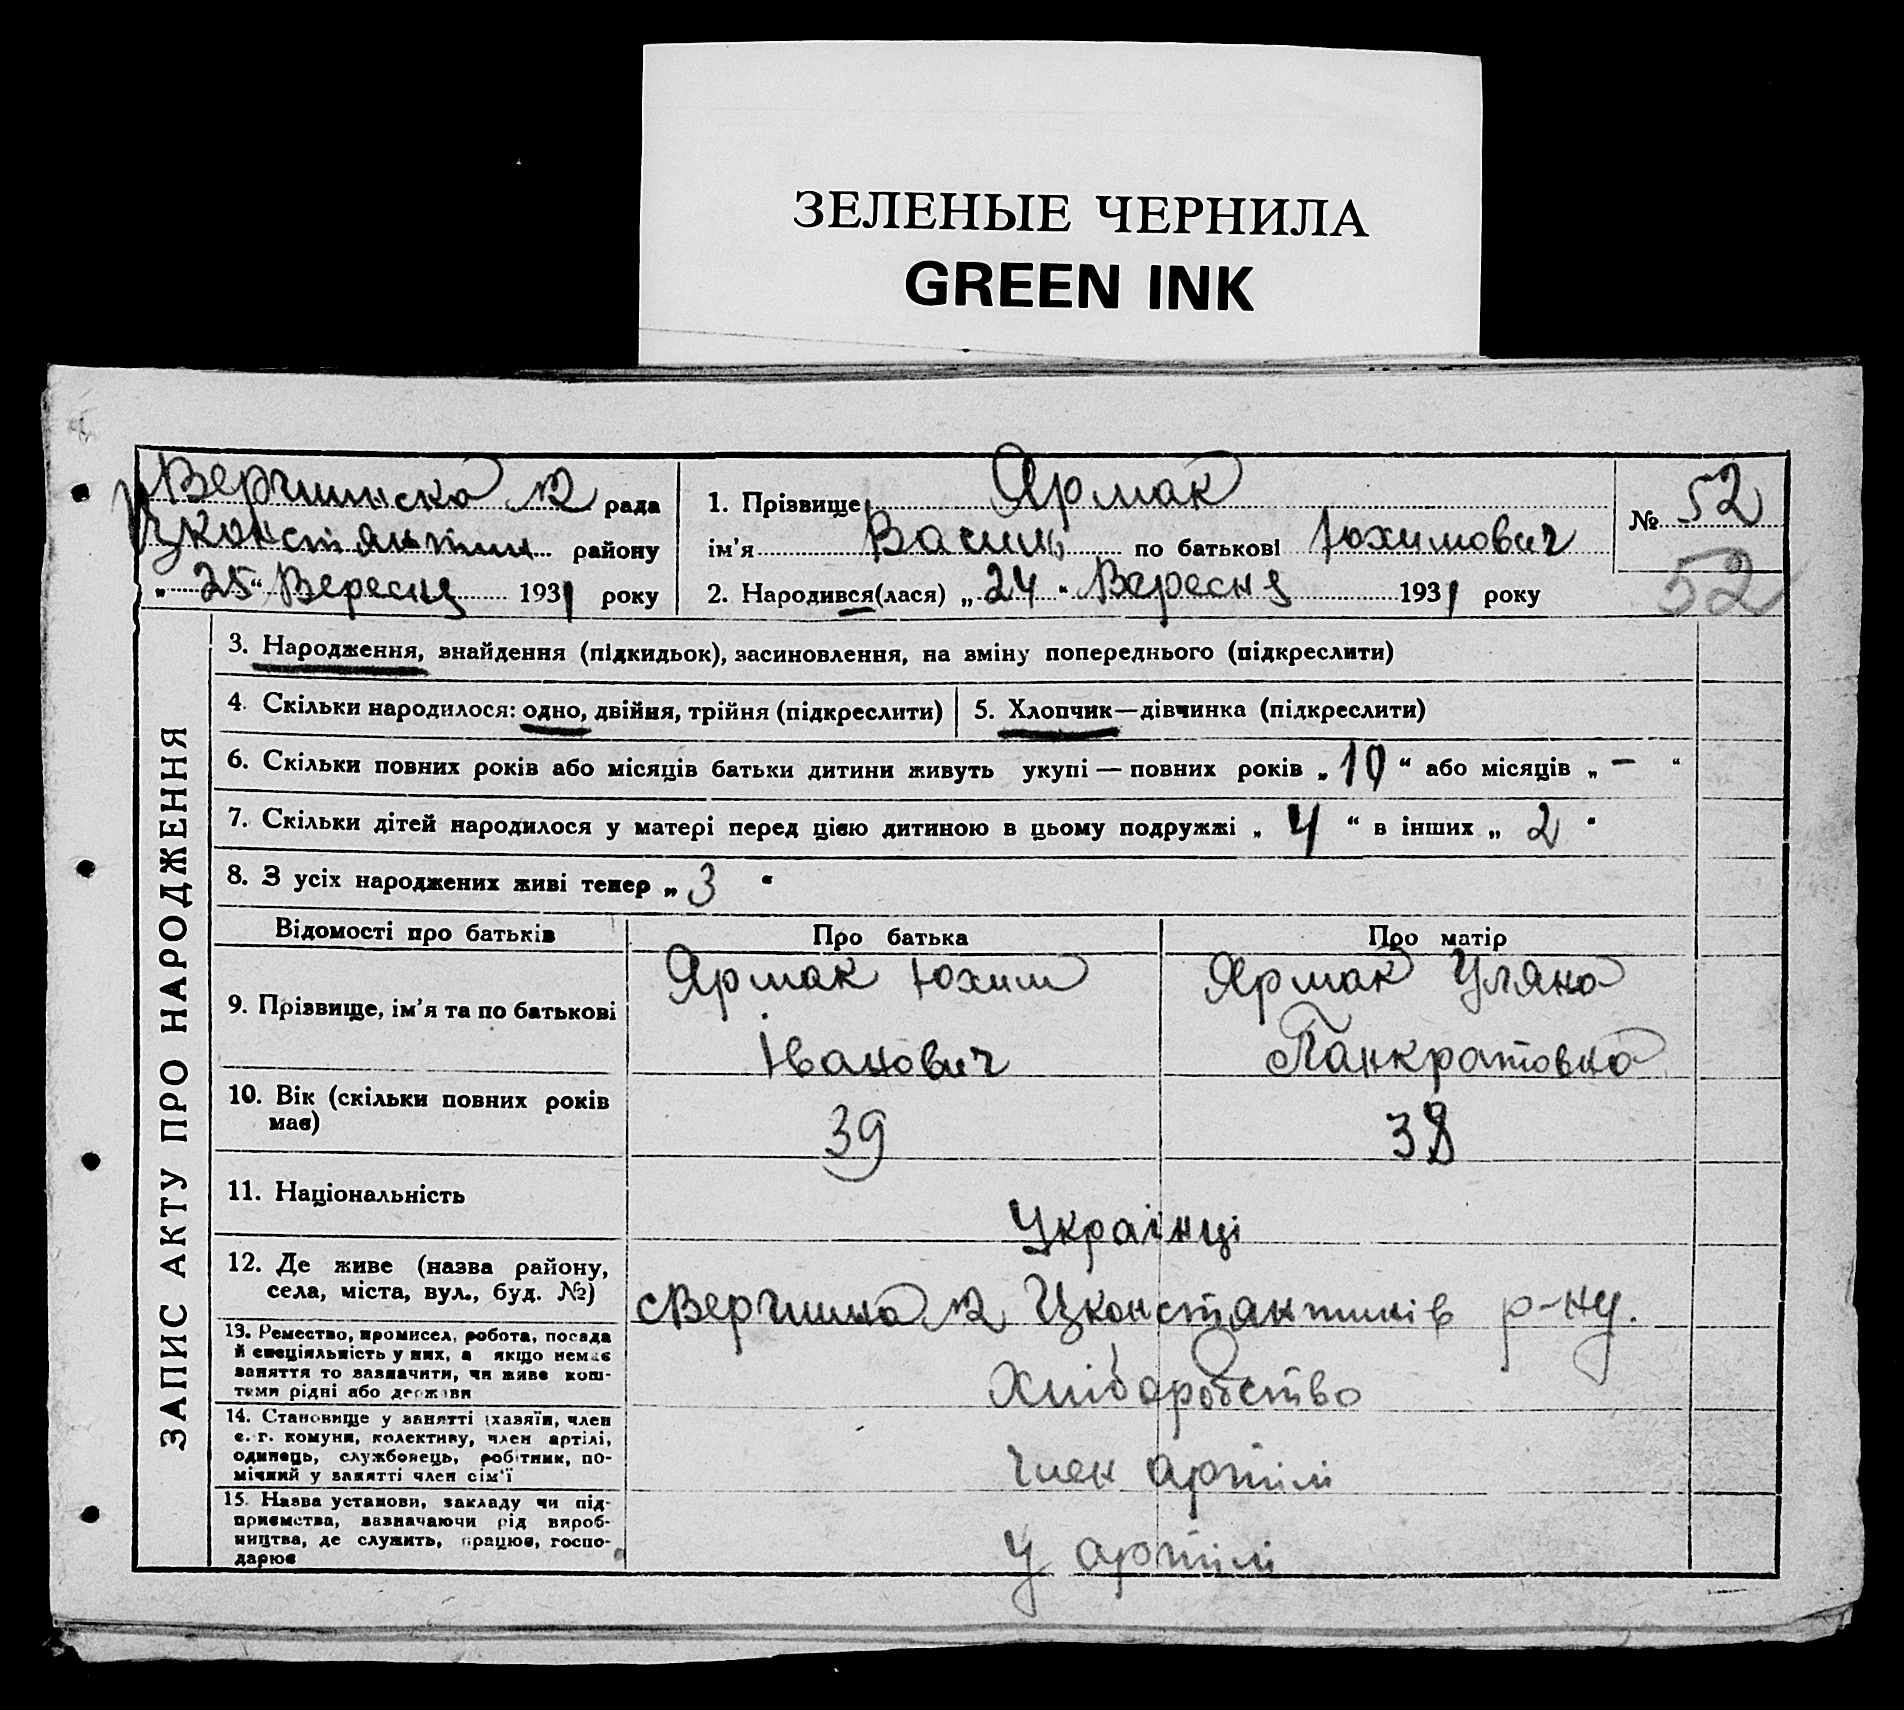 ЗЕЛЕНЫЕ ЧЕРНИЛА
GREEN INK
Вергунска №2 рада
Цконстянтин району
„25“ Вересня 1931 року
1. Прізвище Ярмак
ім'я Василь по батькові Юхимович
2. Народився(лася) „24“ Вересня 1931 року
№ 52
52
ЗАПИС АКТУ ПРО НАРОДЖЕННЯ
3. Народження, знайдення (підкидьок), засиновлення, на зміну попереднього (підкреслити)
4. Скільки народилося: одно, двійня, трійня (підкреслити)
5. Хлопчик—дівчинка (підкреслити)
6. Скільки повних років або місяців батьки дитини живуть укупі — повних років „10“ або місяців „—“
7. Скільки дітей народилося у матері перед цією дитиною в цьому подружжі „4“ в інших „2“
8. З усіх народжених живі тепер „3“
Відомості про батьків
Про батька
Про матір
9. Прізвище, ім'я та по батькові
Ярмак Юхим
Іванович
Ярмак Уляна
Панкратовна
10. Вік (скільки повних років
має)
39
38
11. Національність
Українці
12. Де живе (назва району,
села, міста, вул., буд. №)
Цконстянтинів р-ну.
13. Ремество, промисел, робота, посада
й спеціяльність у них, а якщо немає
заняття то зазначити, чи живе кош-
тами рідні або держави
Хліборобство
14. Становище у занятті (хазяїн, член
с.-г. комуни, колективу, член артілі,
одинець, службовець, робітник, по-
мічний у занятті член сім'ї
Член артілі
15. Назва установи, закладу чи під-
приємства, зазначаючи рід вироб-
ництва, де служить, працює, госпо-
дарює
У артілі